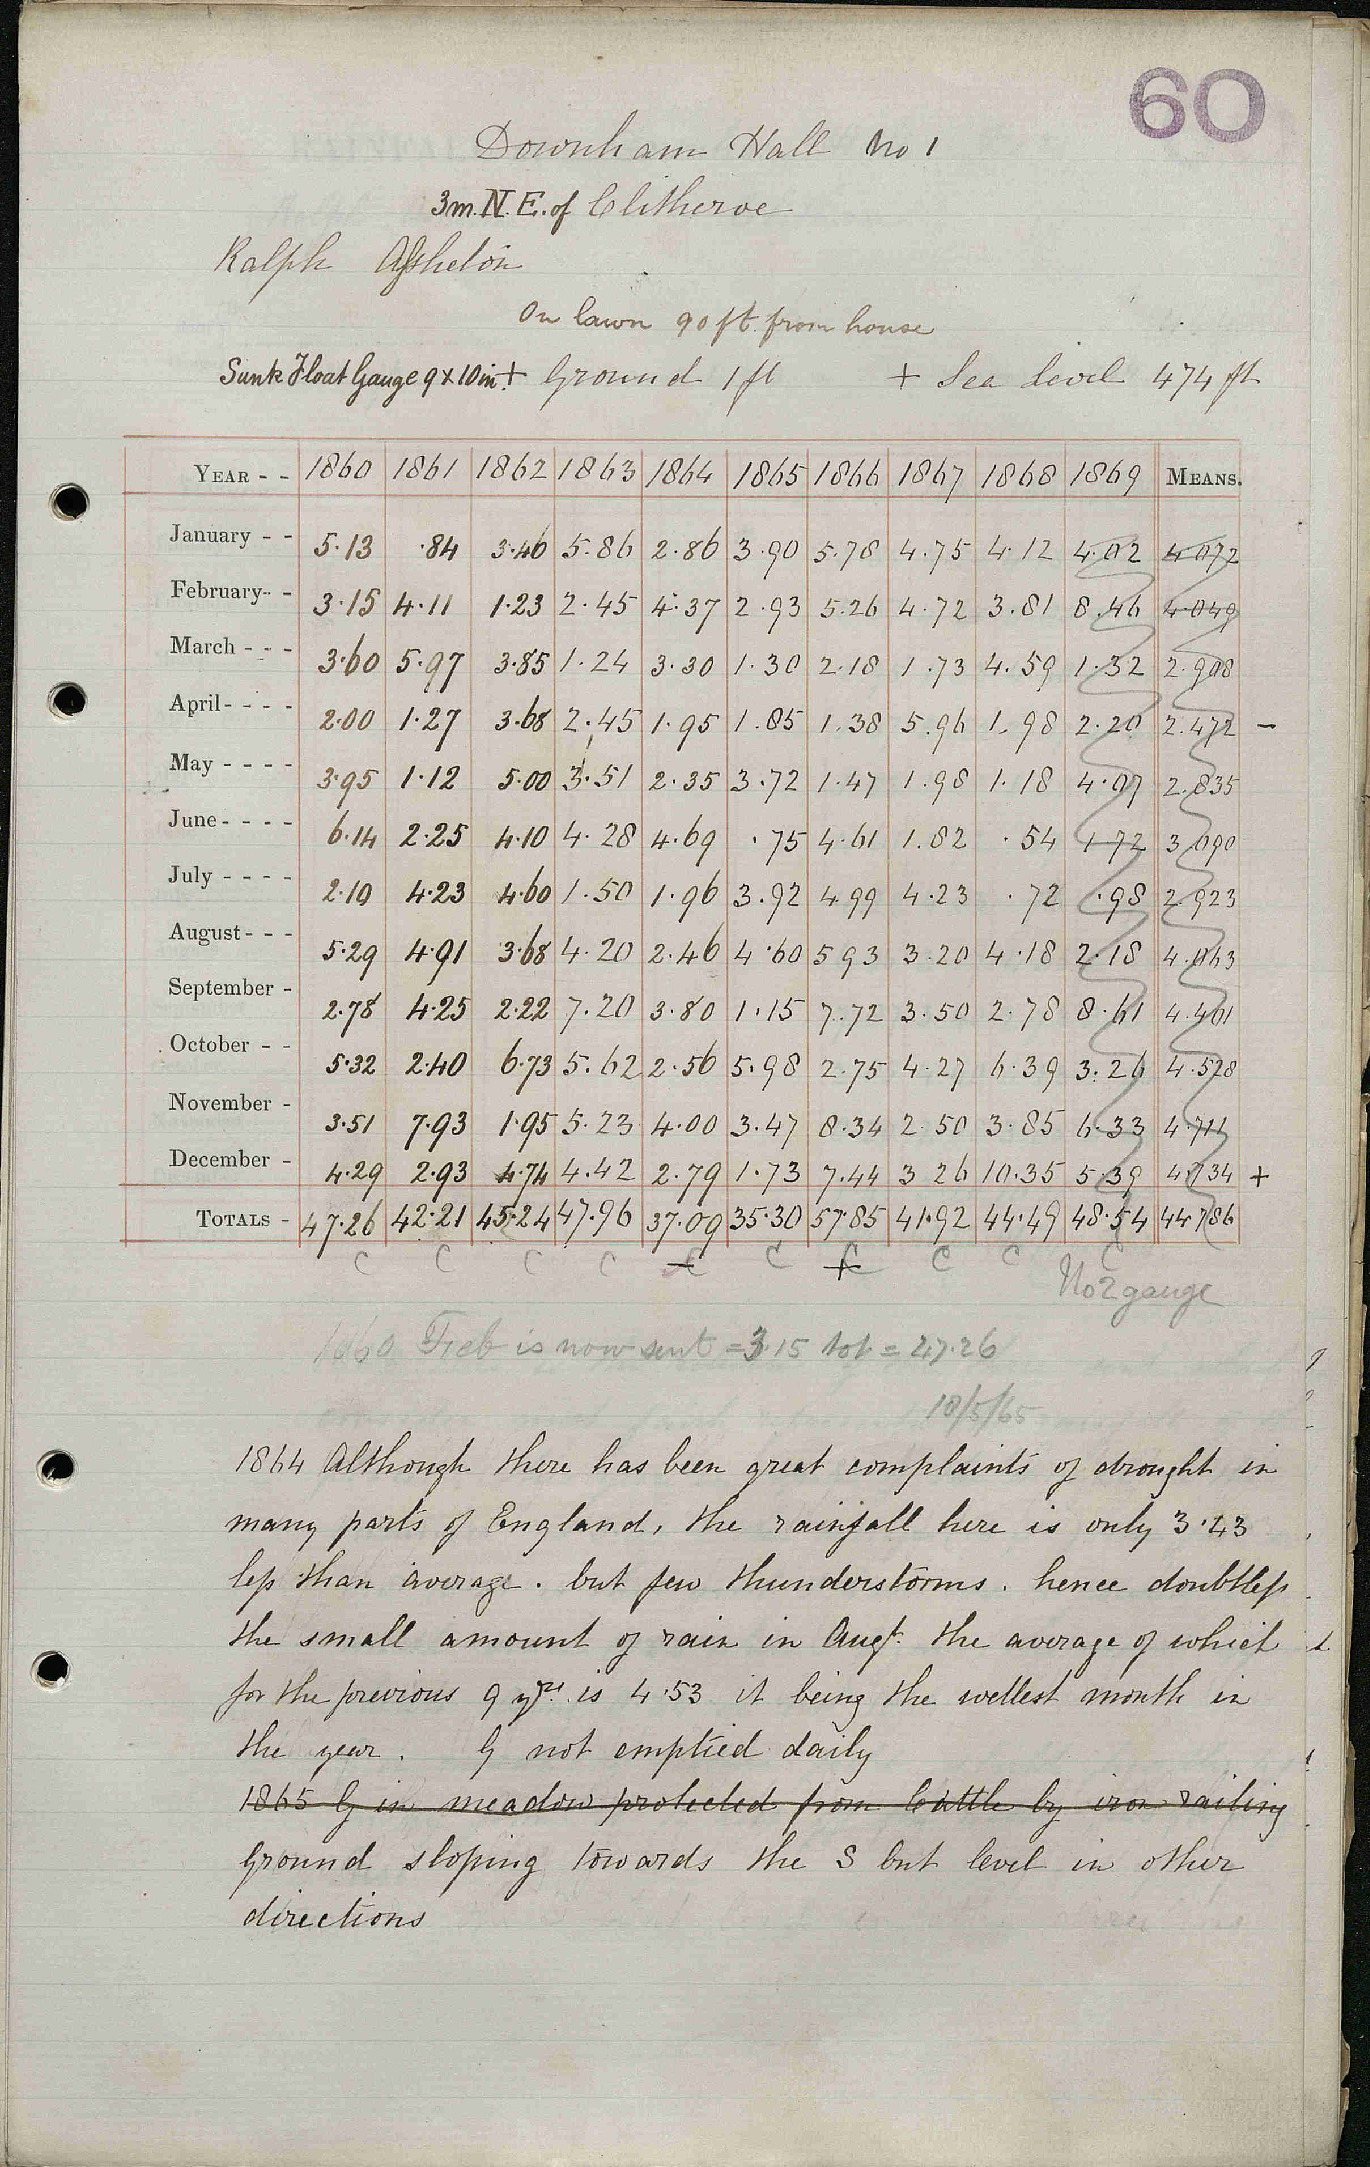 60
Downham Hall No 1
3m. N.E. of Clitheroe
Ralph Assheton
On lawn 90 ft. from house
Sunk Float Gauge 9 x 10 in + Ground 1 ft + Sea level 474 ft
YEAR - - 1860 1861 1862 1863 1864 1865 1866 1867 1868 1869 MEANS.
January - - 5.13 .84 3.46 5.86 2.86 3.90 5.78 4.75 4.12 4.02 4.072
February - - 3.15 4.11 1.23 2.45 4.37 2.93 5.26 4.72 3.81 8.46 4.049
March - - - 3.60 5.97 3.85 1.24 3.30 1.30 2.18 1.73 4.59 1.32 2.908
April - - - - 2.00 1.27 3.68 2.45 1.95 1.85 1.38 5.96 1.98 2.20 2.472 -
May - - - - 3.95 1.12 5.00 3.51 2.35 3.72 1.47 1.98 1.18 4.07 2.835
June - - - - 6.14 2.25 4.10 4.28 4.69 .75 4.61 1.82 .54 1.72 3.090
July - - - - 2.10 4.23 4.60 1.50 1.96 3.92 4.99 4.23 .72 .98 2.923
August - - - 5.29 4.91 3.68 4.20 2.46 4.60 5 93 3.20 4.18 2.18 4.063
September - 2.78 4.25 2.22 7.20 3.80 1.15 7.72 3.50 2.78 8.61 4.401
October - - 5.32 2.40 6.73 5.62 2.56 5.98 2.75 4.27 6.39 3.26 4.528
November - 3.51 7.93 1.95 5.23 4.00 3.47 8.34 2.50 3.85 6.33 4.711
December - 4.29 2.93 4.74 4.42 2.79 1.73 7.44 3 26 10.35 5.39 4.734 +
TOTALS - 47.26 42.21 45.24 47.96 37.09 35.30 57.85 41.92 44.49 48.54 44.786
C C C C - C C + C C C C
No 2 gauge
1860 Feb is now sent = 3.15 tot = 47.26
18/5/65
1864 Although there has been great complaints of drought in
many parts of England, the rainfall here is only 3.43
less than average. but few thunderstorms. hence doubtless
the small amount of rain in Augt. the average of which
for the previous 9 yrs. is 4.53 it being the wettest month in
the year. G not emptied daily
1865 G in meadow protected from Cattle by iron railing
Ground sloping towards the S but level in other
directions